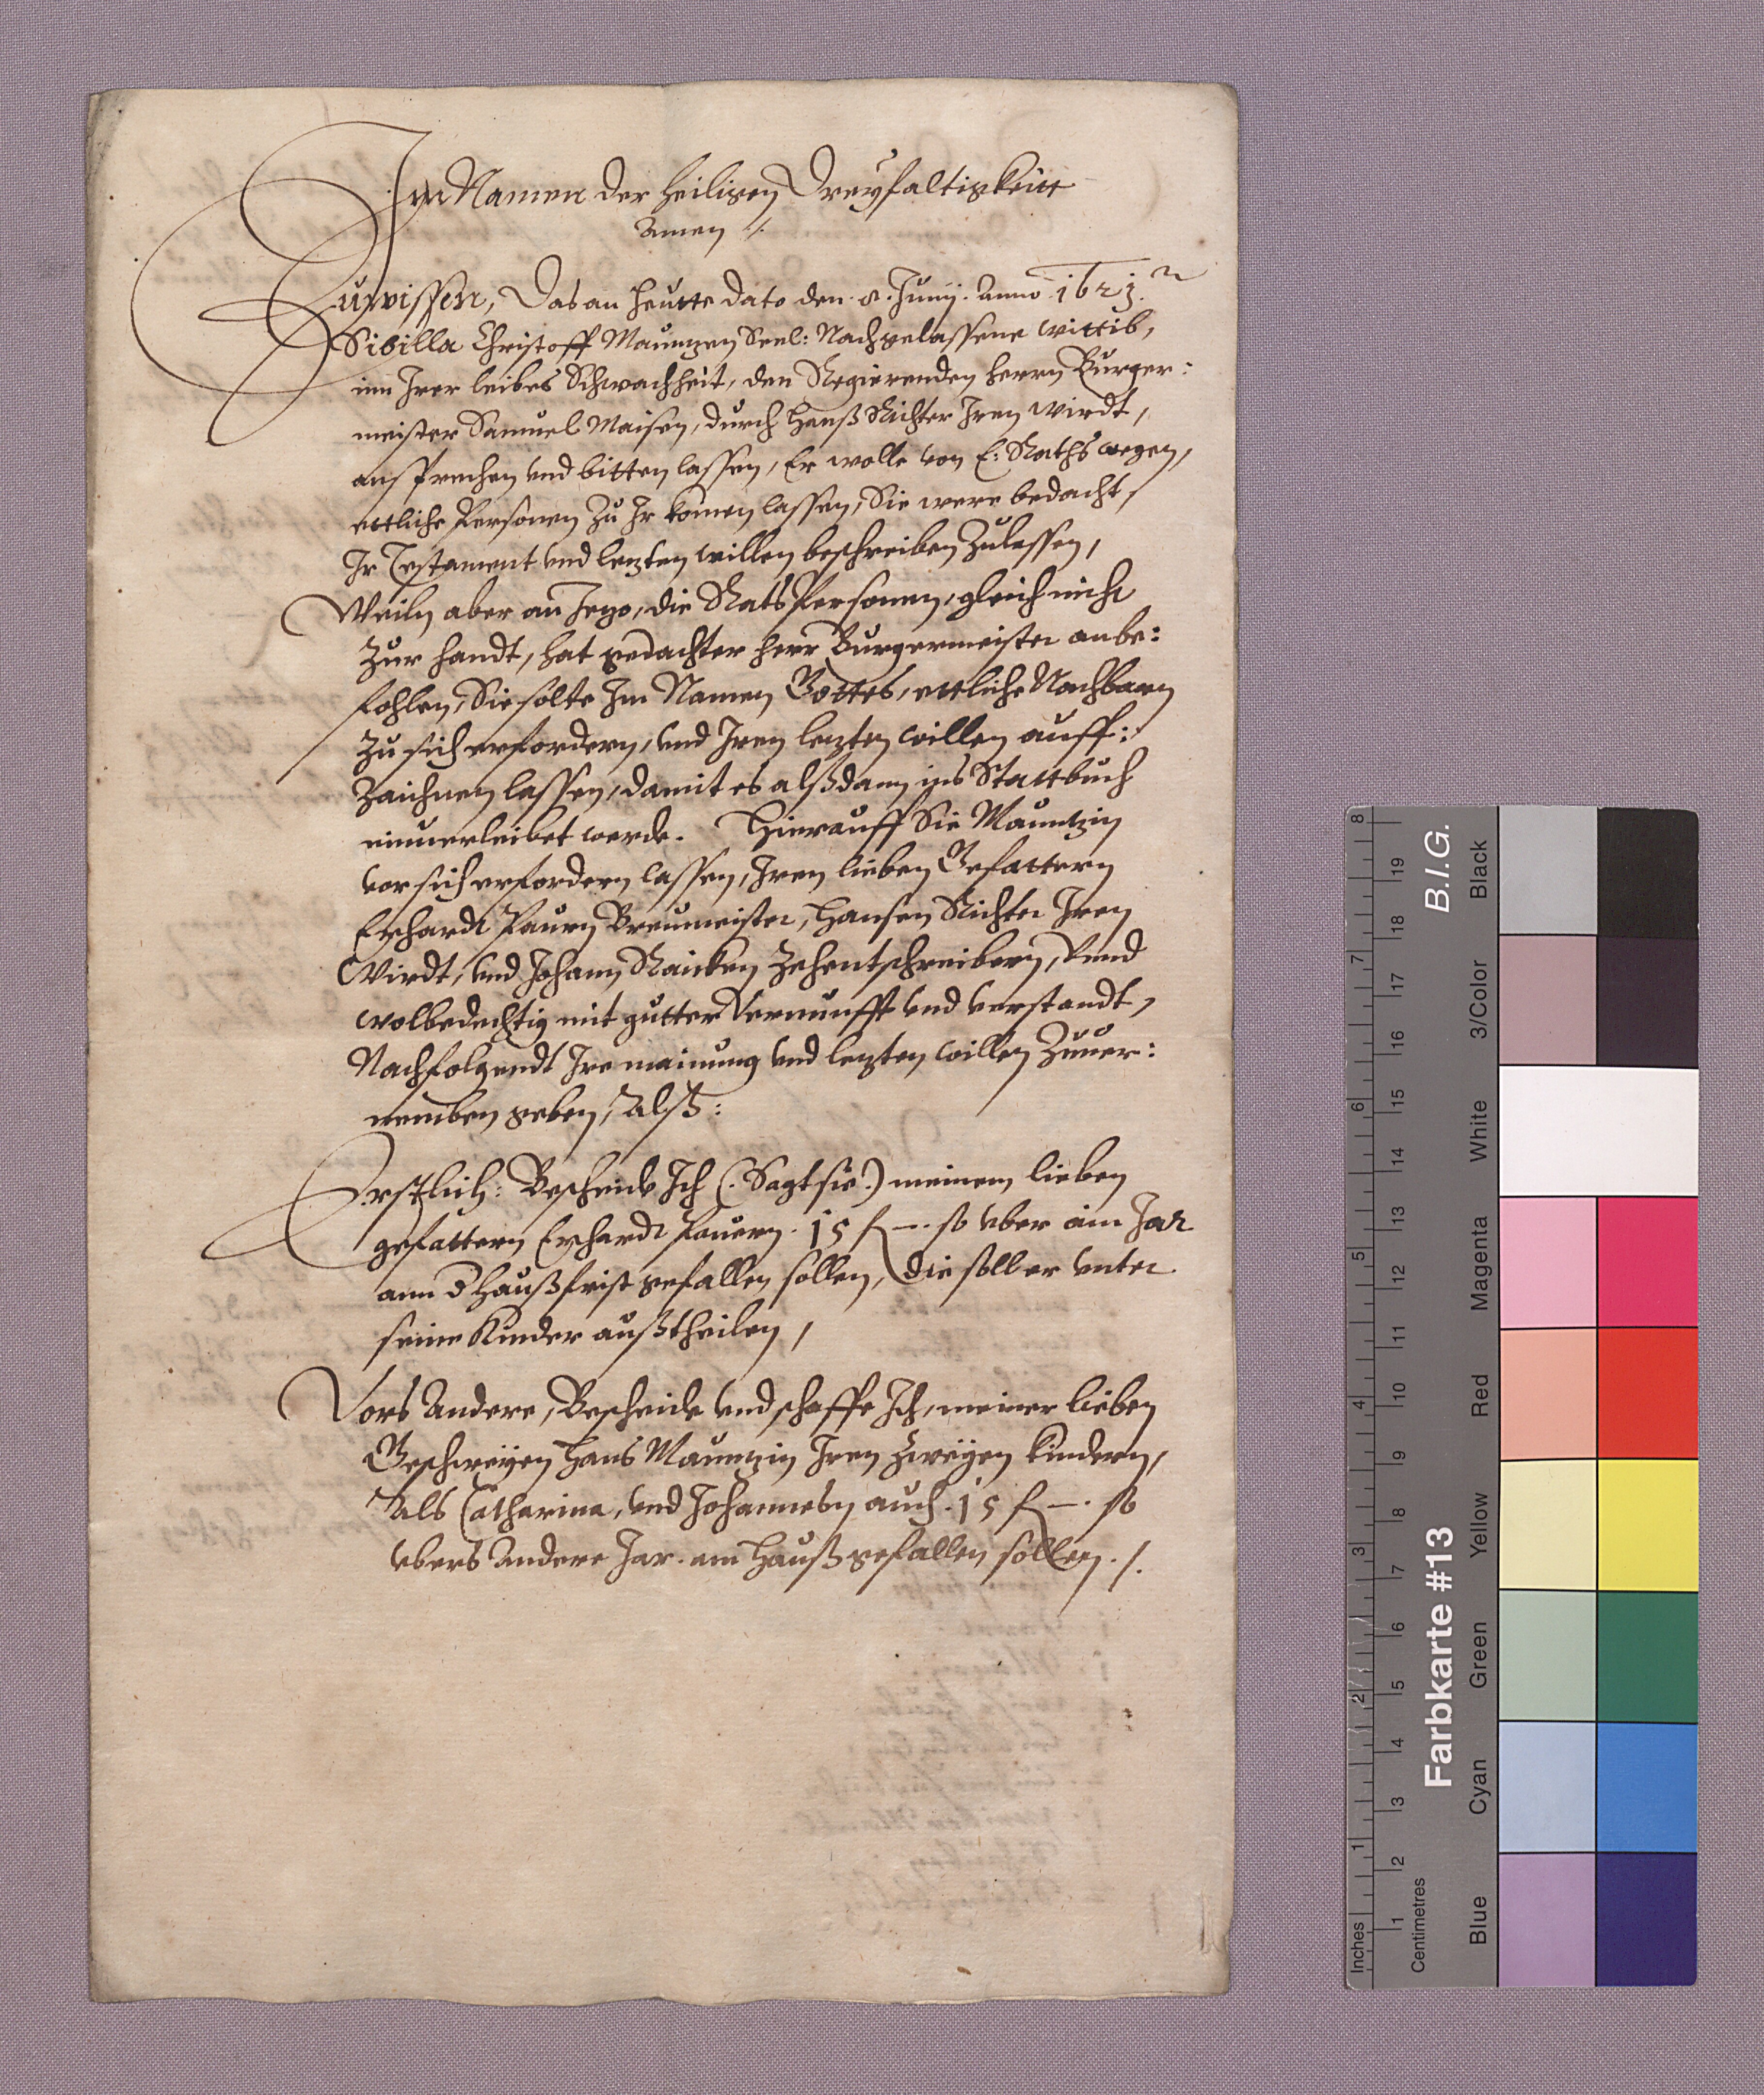 Im Namen der heiligen Dreyfaltigkeitt
Amen ./.
Zuwissen, Das an heutte dato den .8. Junij. Anno 1621.
Sibilla Christoff Mauntzen Seel: Nachgelassene wittib,
inn Irer leibes Schwachheit, den Regierenden herrn Burger:
meister Samuel Maisen, durch Hanß Richter Iren wirdt,
ansprechen vnd bitten lassen, Er wolle von E: Raths wegen,
ettliche Personen zu Ir komen lassen, Sie were bedacht,
Ir Testament vnd lezten willen beschreiben Zulassen,
Weiln aber an Jezo, die Rats Personen, gleich nicht
zur handt, hat gedachter herr Burgermeister anbe:
fohlen, Sie solte Im Namen Gottes, ettliche Nachbarn
zu sich erfordern, vnd Iren lezten willen auff:
zaichnen lassen, damit es alßdann ins Stattbuch
einuerleibet werde. Hierauff Sie Mauntzin
vor sich erfordern lassen, Iren lieben Gefattern
Erhardt Paurn Breumeister, Hansen Richter Iren
Wirdt, vnd Johann Raicken Zehentschreibern, Vnnd
wolbedechtig mit gutter Vernunfft vnd verstandt,
Nachfolgendt Ire mainung vnd lezten willen Zuuer:
nemben geben, Alß:
Erstlich: Bescheide Ich (. Sagt sie .) meinem lieben
gefattern Erhardt Pauern . 15 f —. so vber ain Jar
ann d Haußfrist gefallen sollen, die soll er vnter
seine Kinder außtheilen,
Vors Andere, Bescheide vnd schaffe Ich, meiner lieben
Geschweÿen Hans Mauntzin Iren zweÿen kindern,
Als Catharina, vnd Johannesen auch . 15 f —. so
vbers Andere Jar. am Hauß gefallen sollen ./.
8
7
6
5
4
3
2
1
Inches
19
18
17
16
15
14
13
12
11
10
9
8
7
6
5
4
3
2
1
Centimetres
B.I.G.
Farbkarte #13
Black
3/Color
White
Magenta
Red
Yellow
Green
Cyan
Blue